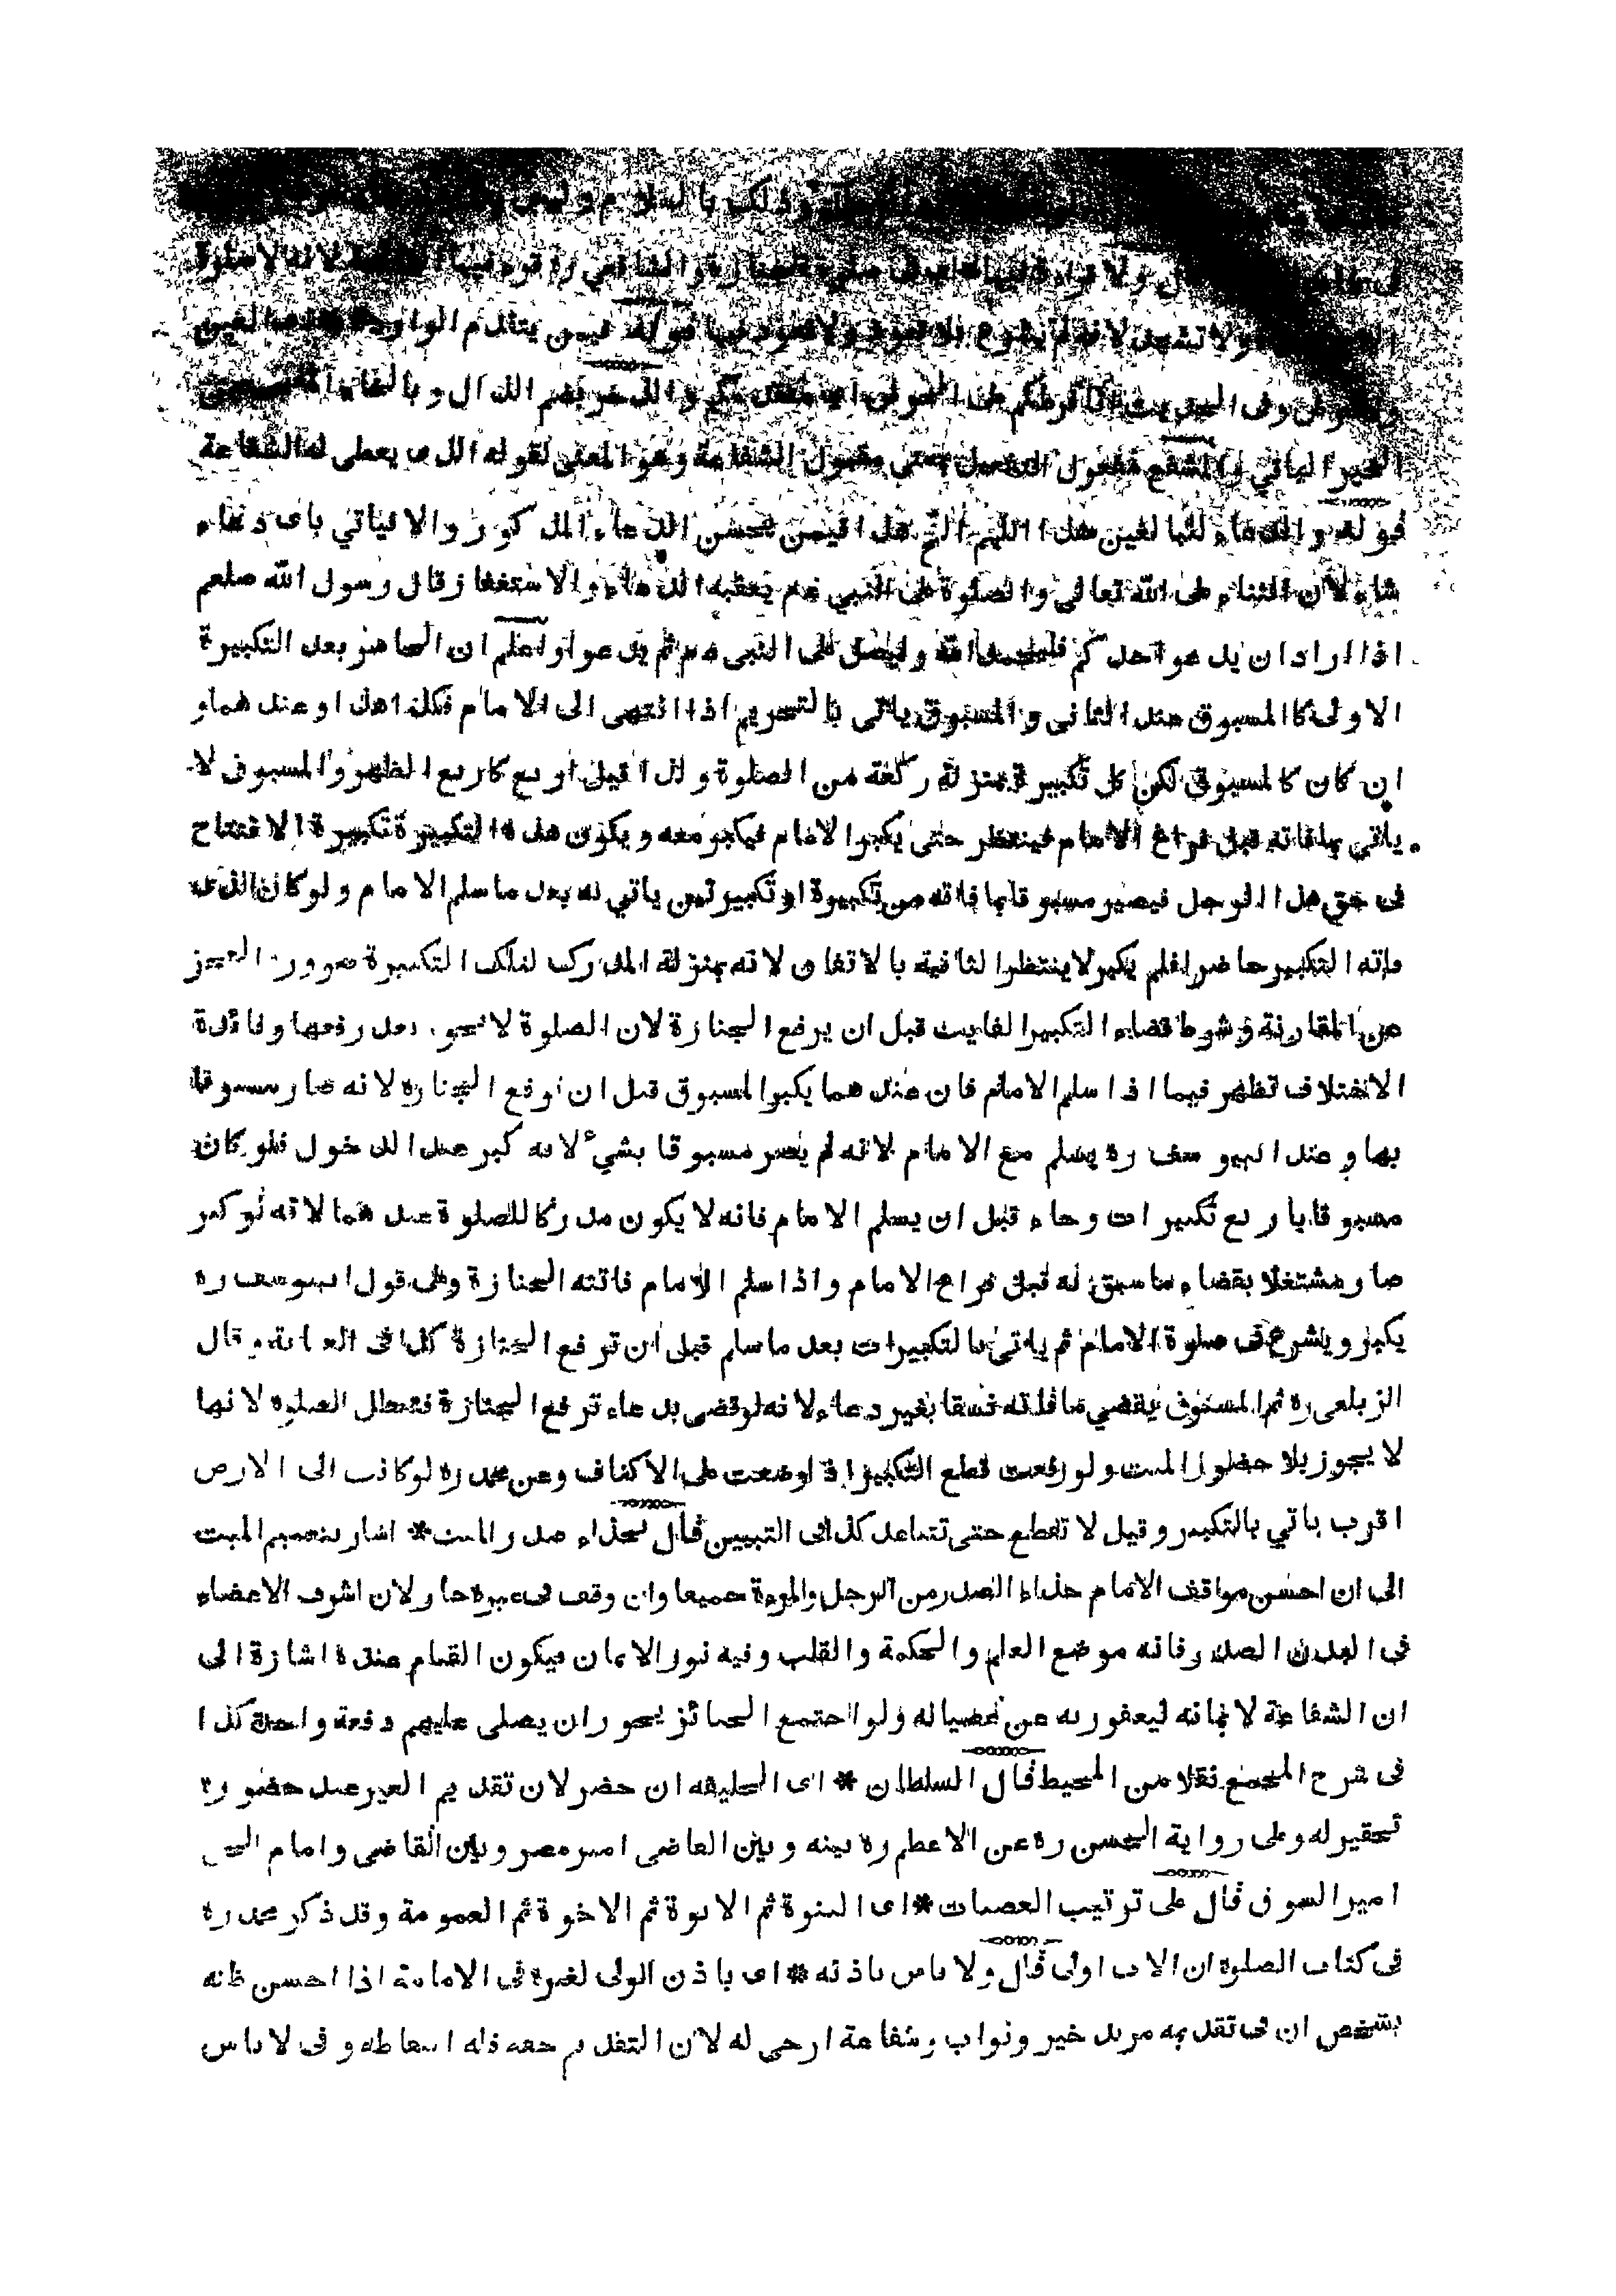 وذلك بالسلام وليس
ولا قراءة فيها والشافعي ره لانه لا صلوة
ولا تشهد لانه لم يشرع بلا قعود ولا قعود فيها قوله فيمن يتقدم الوارد
وفى الحديث انا فرطكم على الحوض اى متقدمكم والذخر بضم الذال وبالخاء المعجمة
الخير الباقي والمشفع مفعول التفعيل بمعنى مقبول الشفاعة وهو المعنى لقوله الذى يعطى له الشفاعة
قوله والدعاء للبالغين هذا اللهم الخ هذا فيمن يحسن الدعاء المذكور والا فياتي باى دعاء
شاء لان الثناء على الله تعالى والصلوة على النبي عم يعقبه الدعاء والاستغفار قال رسول الله صلعم
اذا اراد ان يدعو احدكم فليحمد الله وليصل على النبى عم ثم يدعو واعلم ان الحاضر بعد التكبيرة
الاولى كالمسبوق عند الثانى والمسبوق ياتى بالتحريم اذا انتهى الى الامام فكذا هذا وعندهما و
ان كان كالمسبوق لكن كل تكبيرة بمنزلة ركعة من الصلوة ولذا قيل اربع كاربع الظهر والمسبوق لا
ياتي بما فاته قبل فراغ الامام فينتظر حتى يكبر الامام فيكبر معه ويكون هذه التكبيرة تكبيرة الافتتاح
فى حق هذا الرجل فيصير مسبوقا بما فاته من تكبيرة او تكبيرتين ياتي به بعد ما سلم الامام ولو كان الذى
فاته التكبير حاضرا فلم يكبر لا ينتظر الثانية بالاتفاق لانه بمنزلة المدرك لتلك التكبيرة ضرورة العجز
عن المقارنة وشرط قضاء التكبير الفايت قبل ان يرفع الجنازة لان الصلوة لا تجوز بعد رفعها وفائدة
الاختلاف تظهر فيما اذا سلم الامام فان عندهما يكبر المسبوق قبل ان ترفع الجنازه لانه صار مسبوقا
بها وعند ابيوسف ره يسلم مع الامام لانه لم يصر مسبوقا بشيء لانه كبر عند الدخول فلو كان
مسبوقا باربع تكبيرات وجاء قبل ان يسلم الامام فانه لا يكون مدركا للصلوة عندهما لانه لو كبر
صار مشتغلا بقضاء ما سبق له قبل فراغ الامام واذا سلم الامام فاتته الجنازة وعلى قول ابيوسف ره
يكبر ويشرع فى صلوة الامام ثم ياتى بالتكبيرات بعد ما سلم قبل ان ترفع الجنازة كذا فى العناية وقال
الزيلعى ره ثم المسبوق يقضي ما فاته نسقا بغير دعاء لانه لو قضى بدعاء ترفع الجنازة فتبطل الصلوه لانها
لا يجوز بلا حضور الميت ولو رفعت قطع التكبير اذا وضعت على الاكتاف وعن محمد ره لو كانت الى الارض
اقرب ياتي بالتكبير وقيل لا تقطع حتى تتباعد كذا فى التبيين قال بحذاء صدر الميت * اشار بتعميم الميت
الى ان احسن مواقف الامام حذاء الصدر من الرجل والمرءة جميعا وان وقف فى غيره جاز ولان اشرف الاعضاء
فى البدن الصدر فانه موضع العلم والحكمة والقلب وفيه نور الايمان فيكون القيام عنده اشارة الى
ان الشفاعة لايمانه ليعفو ربه عن عصياله ولو اجتمع الجنائز يجوز ان يصلى عليهم دفعة واحدة كذا
فى شرح المجمع نقلا من المحيط قال السلطان * اى الخليفه ان حضر لان تقديم الغير عند حضوره
تحقير له وعلى رواية الحسن ره عن الاعظم ره بينه وبين القاضى امير مصر وبين القاضى وامام الحى
امير السوق قال على ترتيب العصبات * اى البنوة ثم الابوة ثم الاخوة ثم العمومة وقد ذكر محمد ره
فى كتاب الصلوة ان الاب اولى قال ولا باس باذنه * اى باذن الولى لغيره فى الامامة اذا احسن ظنه
بشخص ان فى تقديمه مزيد خير وثواب وشفاعة ارجى له لان التقديم حقه فله اسقاطه وفى لا باس